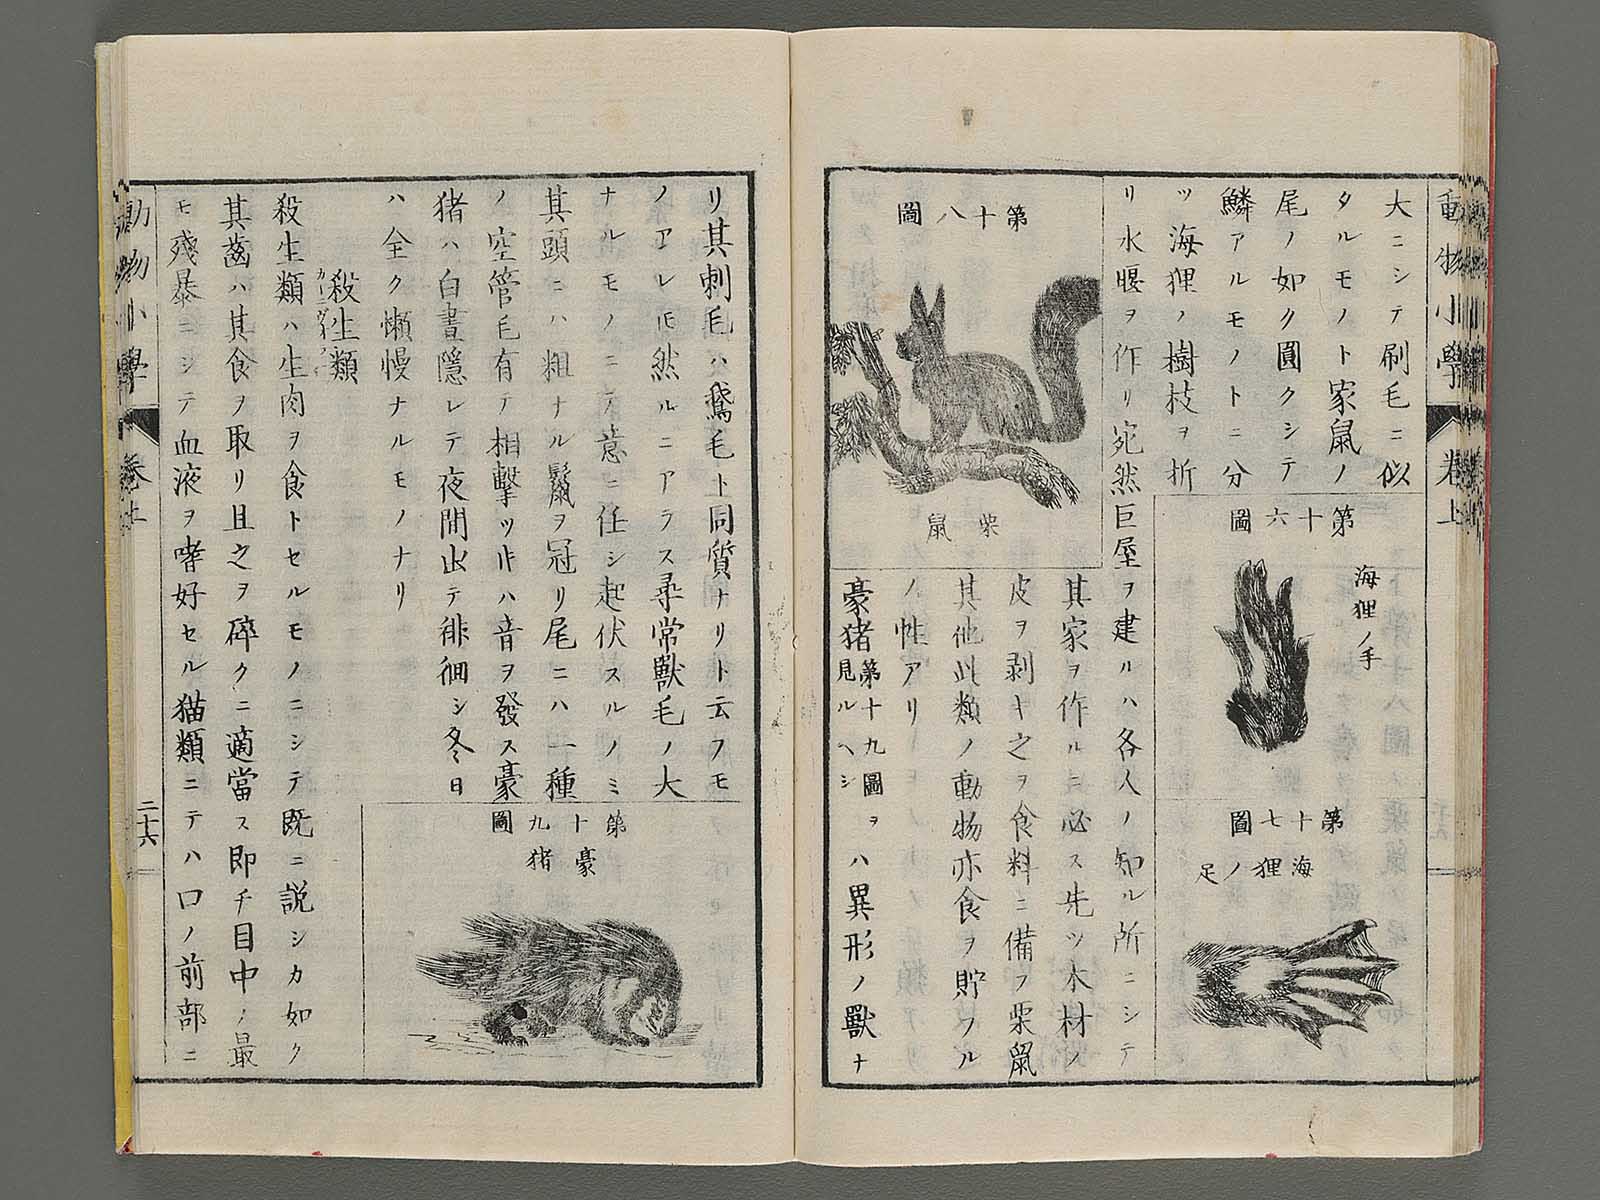 動物小學 卷上
大ニシテ刷毛ニ似
タルモノト家鼠ノ
尾ノ如ク圓クシテ
鱗アルモノトニ分
ツ海狸ノ樹枝ヲ折
リ水堰ヲ作リ宛然巨屋ヲ建ルハ各人ノ知ル所ニシテ
第十六圖
海狸ノ手
第十七圖
海狸ノ足
第十八圖
栗鼠
其家ヲ作ルニ必ス先ツ木材ノ
皮ヲ剥キ之ヲ食料ニ備フ栗鼠
其他此類ノ動物亦食ヲ貯フル
ノ性アリ
豪猪第十九圖ヲ見ルヘシハ異形ノ獸ナ
リ其刺毛ハ鵞毛ト同質ナリト云フモ
ノアレ𪜈然ルニアラス尋常獸毛ノ大
ナルモノニテ意ニ任シ起伏スルノミ
其頭ニハ粗ナル鬣ヲ冠リ尾ニハ一種
ノ空管毛有テ相擊ツ片ハ音ヲ發ス豪
猪ハ白晝隱レテ夜間出テ徘徊シ冬日
ハ全ク懶慢ナルモノナリ
第十九圖
豪猪
殺生類
殺生類ハ生肉ヲ食トセルモノニシテ既ニ説シカ如ク
其齒ハ其食ヲ取リ且之ヲ碎クニ適當ス即チ目中ノ最
モ殘暴ニシテ血液ヲ嗜好セル猫類ニテハ口ノ前部ニ
動物小學 卷上
二十六